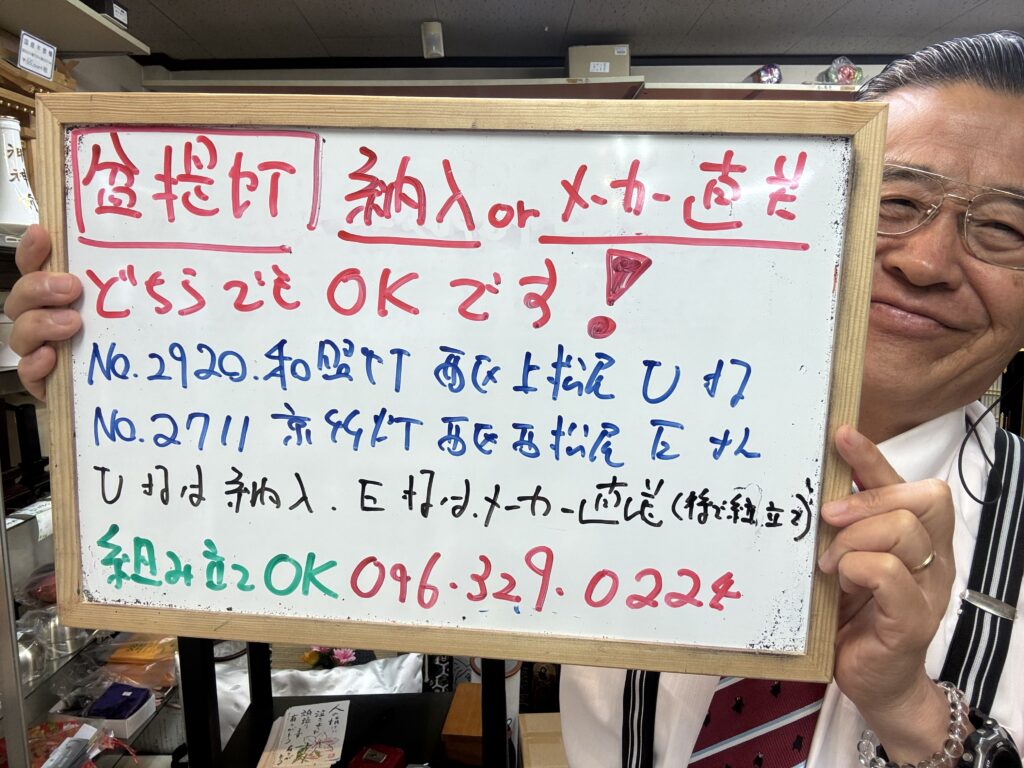 盆提灯 納入 or メーカー直送
どちらでも OK です!
No.2920.和照灯 西区上松尾 U 様
No.2711 京鈴灯 西区西松尾 E さん
U 様は 納入. E 様はメーカー直送(後で組立て)
組み立て OK 096.329.0224